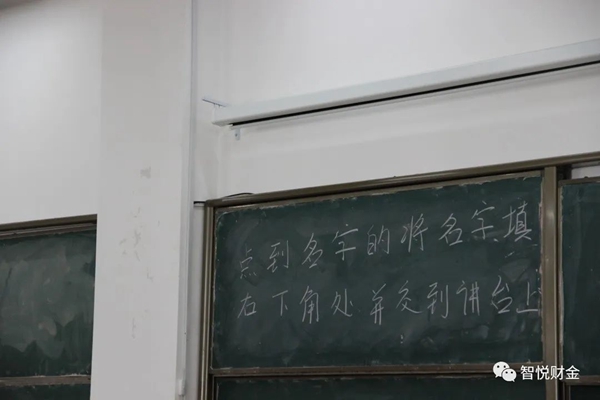 点到名字的将名字填
右下角处并交到讲台上
智悦财金